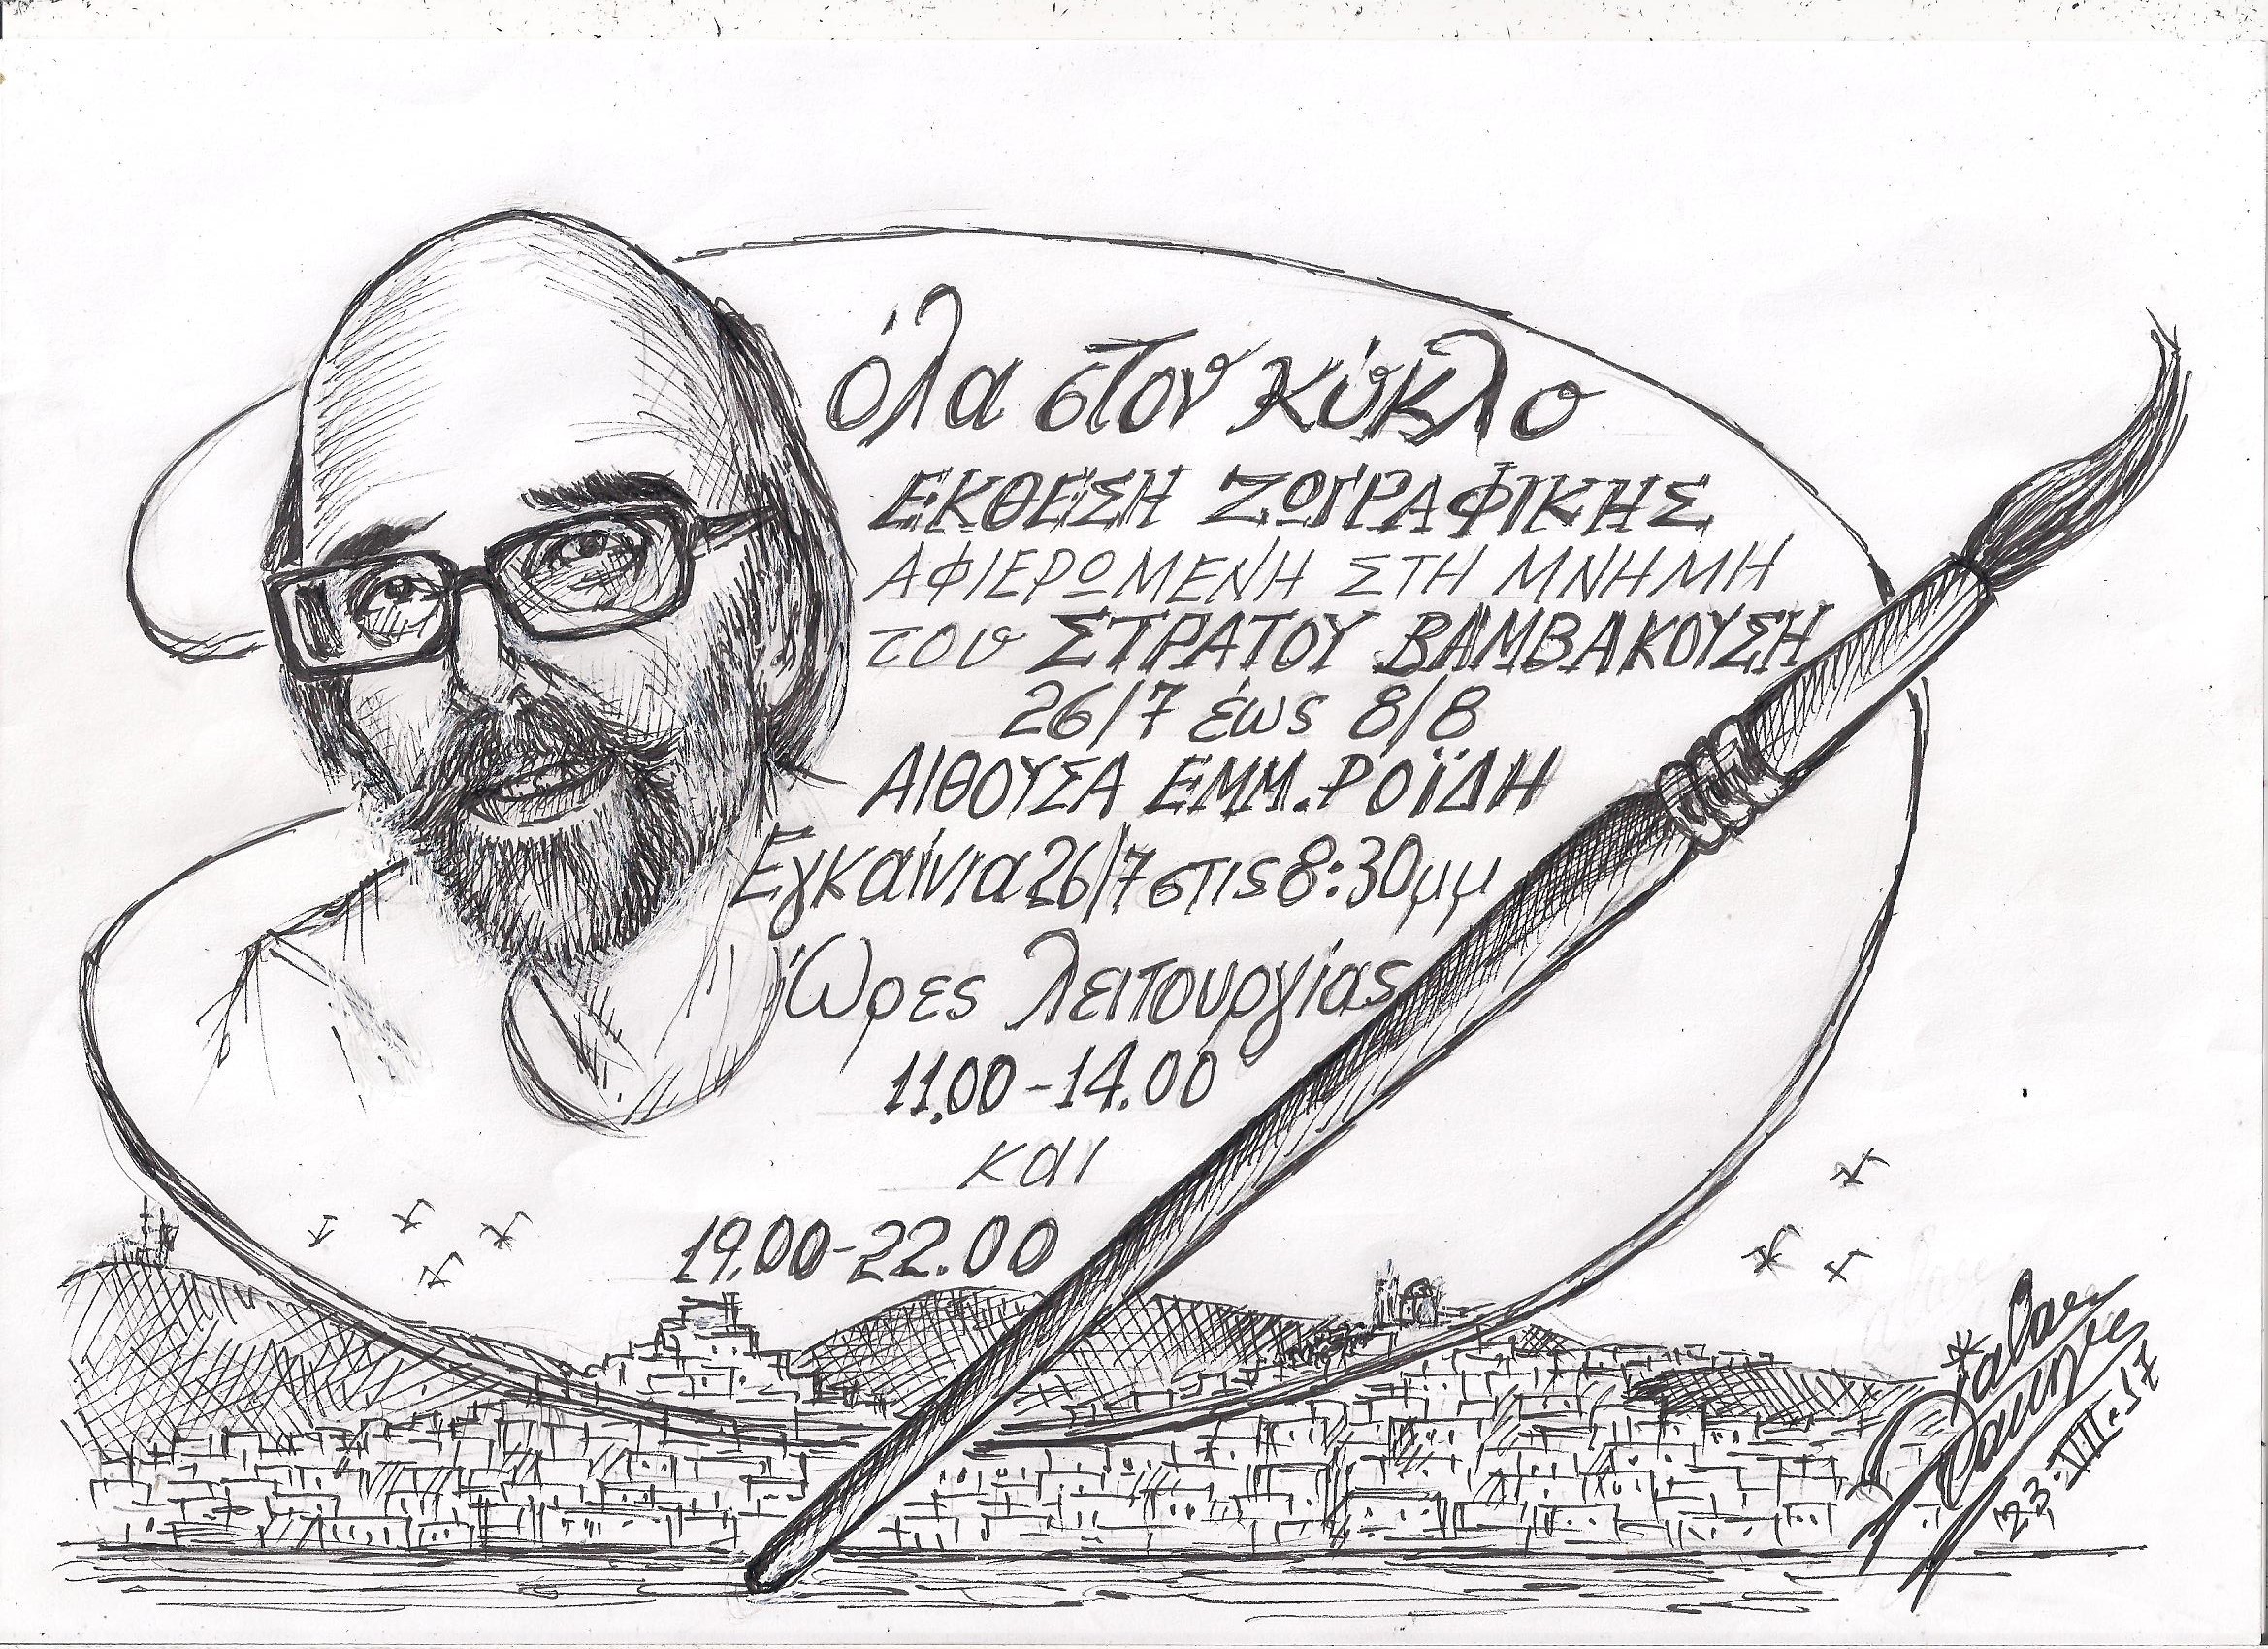 όλα στον κύκλο
ΕΚΘΕΣΗ ΖΩΓΡΑΦΙΚΗΣ
ΑΦΙΕΡΩΜΕΝΗ ΣΤΗ ΜΝΗΜΗ
του ΣΤΡΑΤΟΥ ΒΑΜΒΑΚΟΥΣΗ
26/7 έως 8/8
ΑΙΘΟΥΣΑ ΕΜΜ. ΡΟΪΔΗ
Εγκαίνια 26/7 στις 8:30μμ
Ώρες λειτουργίας
11.00-14.00
και
19.00-22.00
23.VII.17